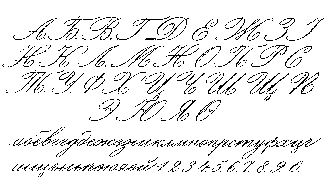 А Б В Г Д Е Ж З І
И К Л М Н О П Р С
Т У Ф Х Ц Ч Ш Щ
Э Ю Я Ѳ
абвгдежзиклмнопрстуфхцч
1 2 3 4 5 6 7 8 9 0